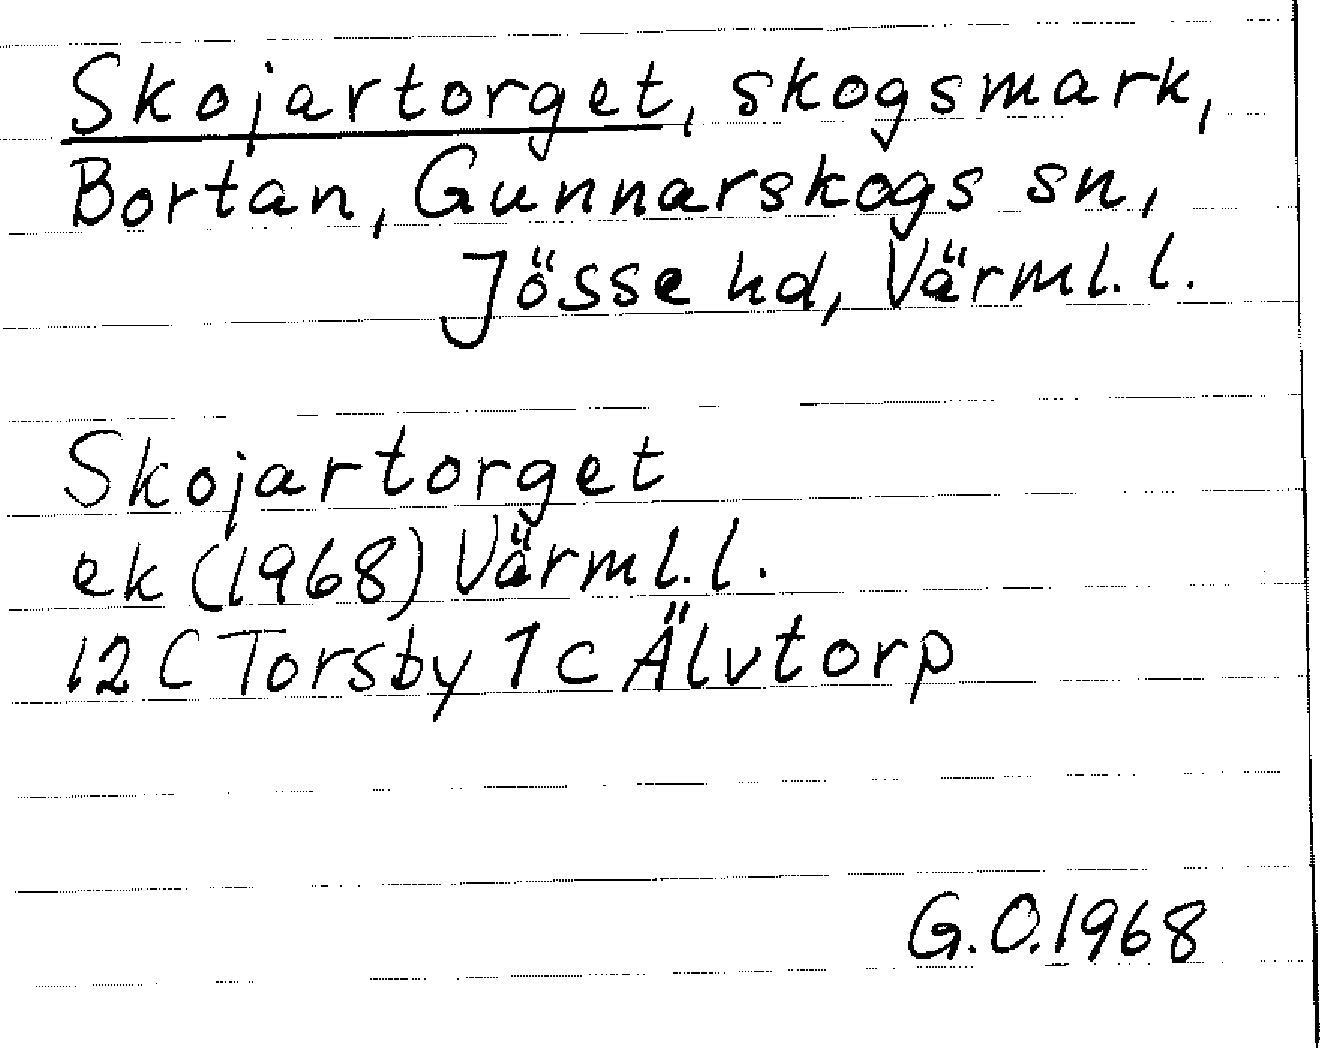 Skojartorget, skogsmark,
Bortan, Gunnarskogs sn,
Jösse hd, Värml. l.
Skojartorget
ek (1968) Värml. l.
12 C Torsby 1 c Älvtorp
G.O. 1968